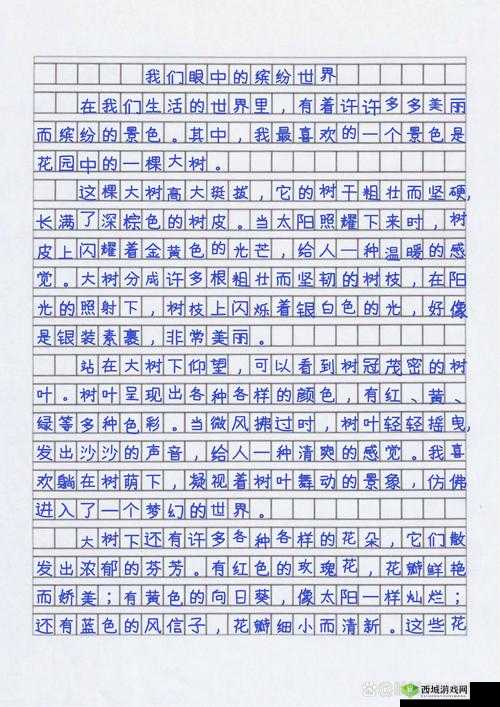 我们眼中的缤纷世界
在我们生活的世界里，有着许许多多美丽
而缤纷的景色。其中，我最喜欢的一个景色是
花园中的一棵大树。
这棵大树高大挺拔，它的树干粗壮而坚硬，
长满了深棕色的树皮。当太阳照耀下来时，树
皮上闪耀着金黄色的光芒，给人一种温暖的感
觉。大树分成许多根粗壮而坚韧的树枝，在阳
光的照射下，树枝上闪烁着银白色的光，好像
是银装素裹，非常美丽。
站在大树下仰望，可以看到树冠茂密的树
叶。树叶呈现出各种各样的颜色，有红、黄、
绿等多种色彩。当微风拂过时，树叶轻轻摇曳，
发出沙沙的声音，给人一种清爽的感觉。我喜
欢躺在树荫下，凝视着树叶舞动的景象，仿佛
进入了一个梦幻的世界。
大树下还有许多各种各样的花朵，它们散
发出浓郁的芬芳。有红色的玫瑰花，花瓣鲜艳
而娇美；有黄色的向日葵，像太阳一样灿烂；
还有蓝色的风信子，花瓣细小而清新。这些花
西城游戏网